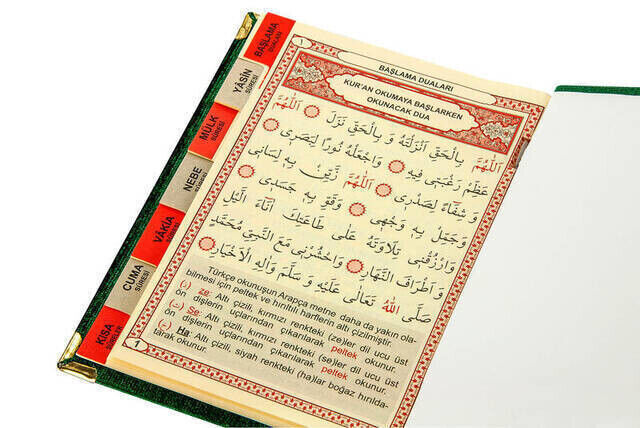 BAŞLAMA
DUALARI
YÂSİN
SÛRESİ
MÜLK
SÛRESİ
NEBE
SÛRESİ
VÂKIA
SÛRESİ
CUMA
SÛRESİ
KISA
SÛRELER
1
BAŞLAMA DUALARI
KUR'AN OKUMAYA BAŞLARKEN
OKUNACAK DUA
اَللّٰهُمَّ بِالْحَقِّ اَنْزَلْتَهُ وَ بِالْحَقِّ نَزَلَ اَللّٰهُمَّ
عَظِّمْ رَغْبَتِى فِيهِ وَاجْعَلْهُ نُورًا لِبَصَرِى
وَ شِفَٓاءً لِصَدْرِى اَللّٰهُمَّ زَيِّنْ بِهِ لِسَانِى
وَجَمِّلْ بِهِ وَجْهِى وَقَوِّ بِهِ جَسَدِى
وَارْزُقْنِى تِلَاوَتَهُ عَلٰى طَاعَتِكَ اٰنَٓاءَ الَّيْلِ
وَ اَطْرَافَ النَّهَارِ وَاحْشُرْنِى مَعَ النَّبِيِّ مُحَمَّدٍ
صَلَّى اللّٰهُ تَعَالٰى عَلَيْهِ وَ سَلَّمَ وَاٰلِهِ الْاَخْيَارِ
Türkçe okunuşun Arapça metne daha da yakın ola-
bilmesi için peltek ve hırıltılı harflerin altı çizilmiştir.
(ذ) ze: Altı çizili, kırmızı renkteki (ze)ler dil ucu üst
ön dişlerin uçlarından çıkarılarak peltek okunur.
(ث) Se: Altı çizili, kırmızı renkteki (se)ler dil ucu üst
ön dişlerin uçlarından çıkarılarak peltek okunur.
Ha: Altı çizili, siyah renkteki (ha)lar boğaz hırılda-
tılarak okunur.
1